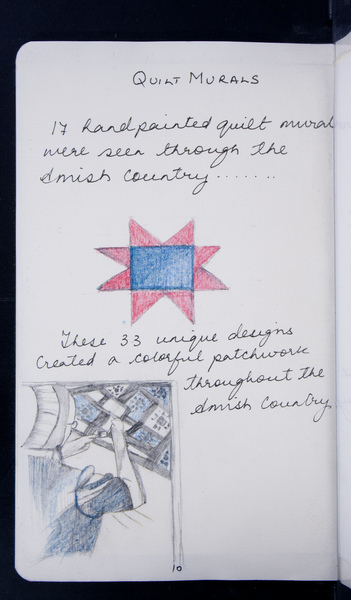 QUILT MURALS
17 handpainted quilt mural
were seen through the
Amish Country.......
These 33 unique designs
Created a colorful patchwork
throughout the
Amish Country
10